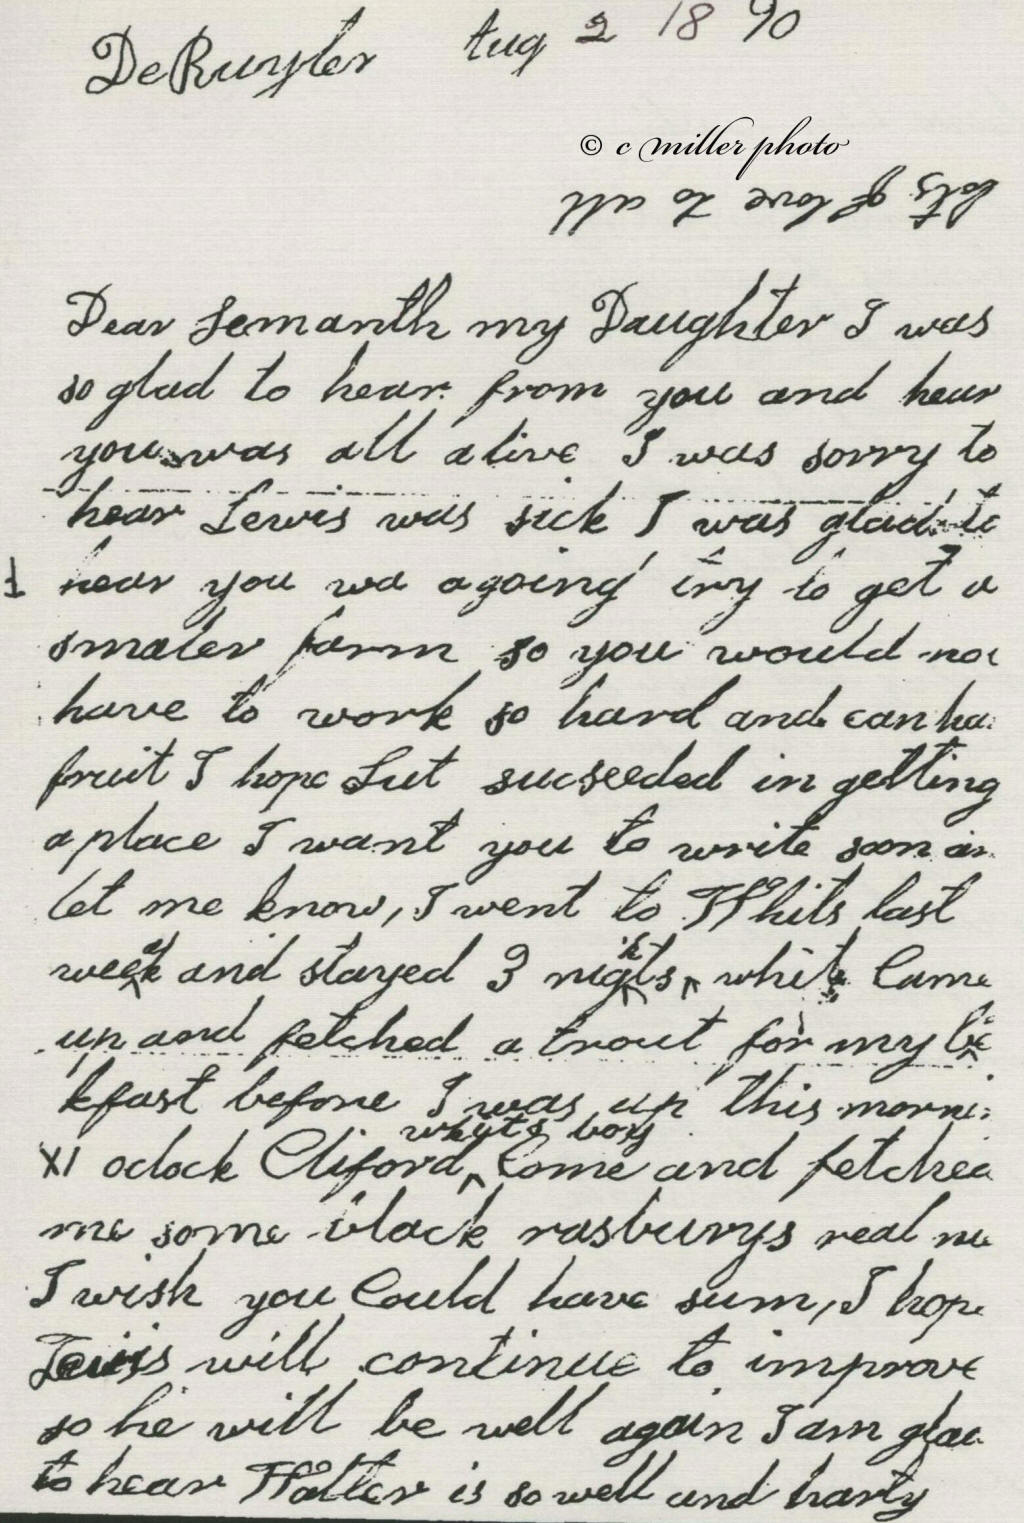 DeRuyter Aug 2 1890
© c miller photo
lots of love to all
Dear Semanth my Daughter I was
so glad to hear from you and hear
you was all alive I was sorry to
hear Lewis was sick I was glad to
1 hear you wa agoing try to get a
smaler farm so you would not
have to work so hard and can ha
fruit I hope Lut sucseeded in getting
a place I want you to write soon an
let me know, I went to Whits last
week and stayed 3 nights whit Came
up and fetched a trout for my
kfast before I was up this morni
whyts boy
XI oclock Cliford Come and fetched
me some black rasburys real
I wish you Could have sum, I hope
Lewis will continue to improve
so he will be well again I am glad
to hear Walter is so well and harty